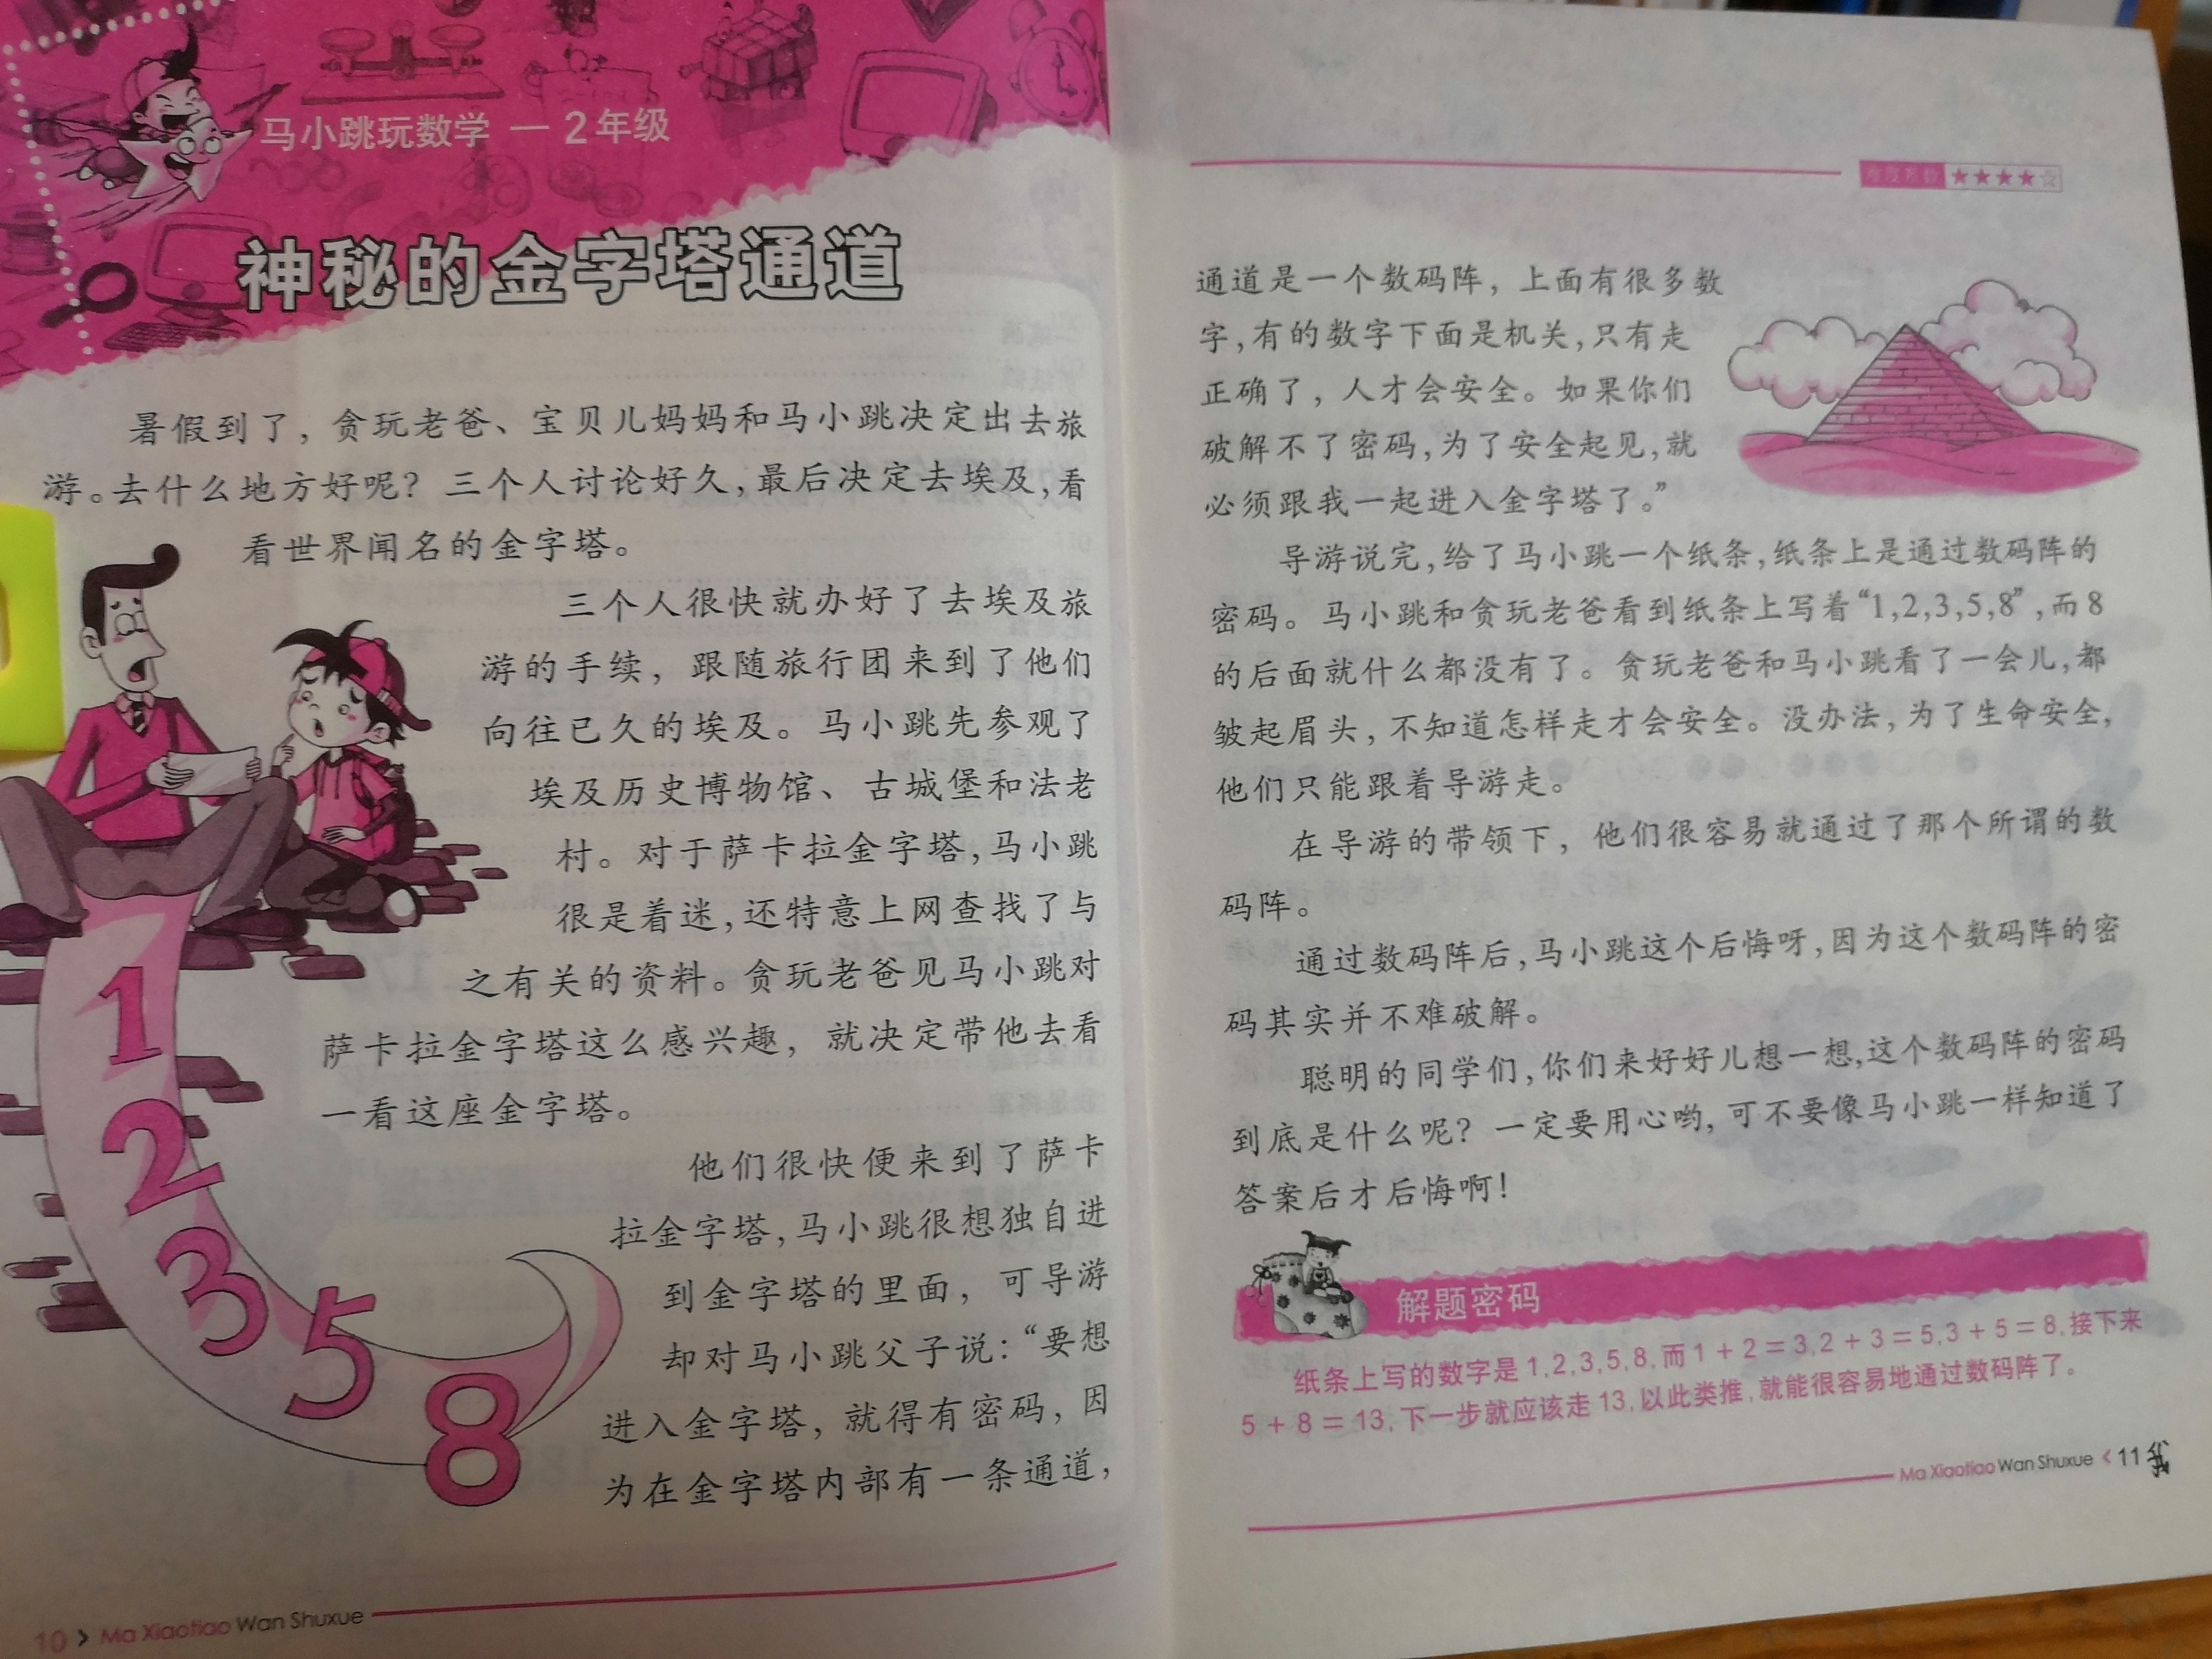 马小跳玩数学 — 2年级
神秘的金字塔通道
暑假到了，贪玩老爸、宝贝儿妈妈和马小跳决定出去旅
游。去什么地方好呢？三个人讨论好久，最后决定去埃及，看
看世界闻名的金字塔。
三个人很快就办好了去埃及旅
游的手续，跟随旅行团来到了他们
向往已久的埃及。马小跳先参观了
埃及历史博物馆、古城堡和法老
村。对于萨卡拉金字塔，马小跳
很是着迷，还特意上网查找了与
之有关的资料。贪玩老爸见马小跳对
萨卡拉金字塔这么感兴趣，就决定带他去看
一看这座金字塔。
他们很快便来到了萨卡
拉金字塔，马小跳很想独自进
到金字塔的里面，可导游
却对马小跳父子说：“要想
进入金字塔，就得有密码，因
为在金字塔内部有一条通道，
1
2
3
5
8
10 > Ma Xiaotiao Wan Shuxue
难度系数 ★★★★☆
通道是一个数码阵，上面有很多数
字，有的数字下面是机关，只有走
正确了，人才会安全。如果你们
破解不了密码，为了安全起见，就
必须跟我一起进入金字塔了。”
导游说完，给了马小跳一个纸条，纸条上是通过数码阵的
密码。马小跳和贪玩老爸看到纸条上写着“1,2,3,5,8”，而8
的后面就什么都没有了。贪玩老爸和马小跳看了一会儿，都
皱起眉头，不知道怎样走才会安全。没办法，为了生命安全，
他们只能跟着导游走。
在导游的带领下，他们很容易就通过了那个所谓的数
码阵。
通过数码阵后，马小跳这个后悔呀，因为这个数码阵的密
码其实并不难破解。
聪明的同学们，你们来好好儿想一想，这个数码阵的密码
到底是什么呢？一定要用心哟，可不要像马小跳一样知道了
答案后才后悔啊！
解题密码
纸条上写的数字是1,2,3,5,8,而1＋2＝3,2＋3＝5,3＋5＝8,接下来
5＋8＝13,下一步就应该走13,以此类推,就能很容易地通过数码阵了。
Ma Xiaotiao Wan Shuxue < 11